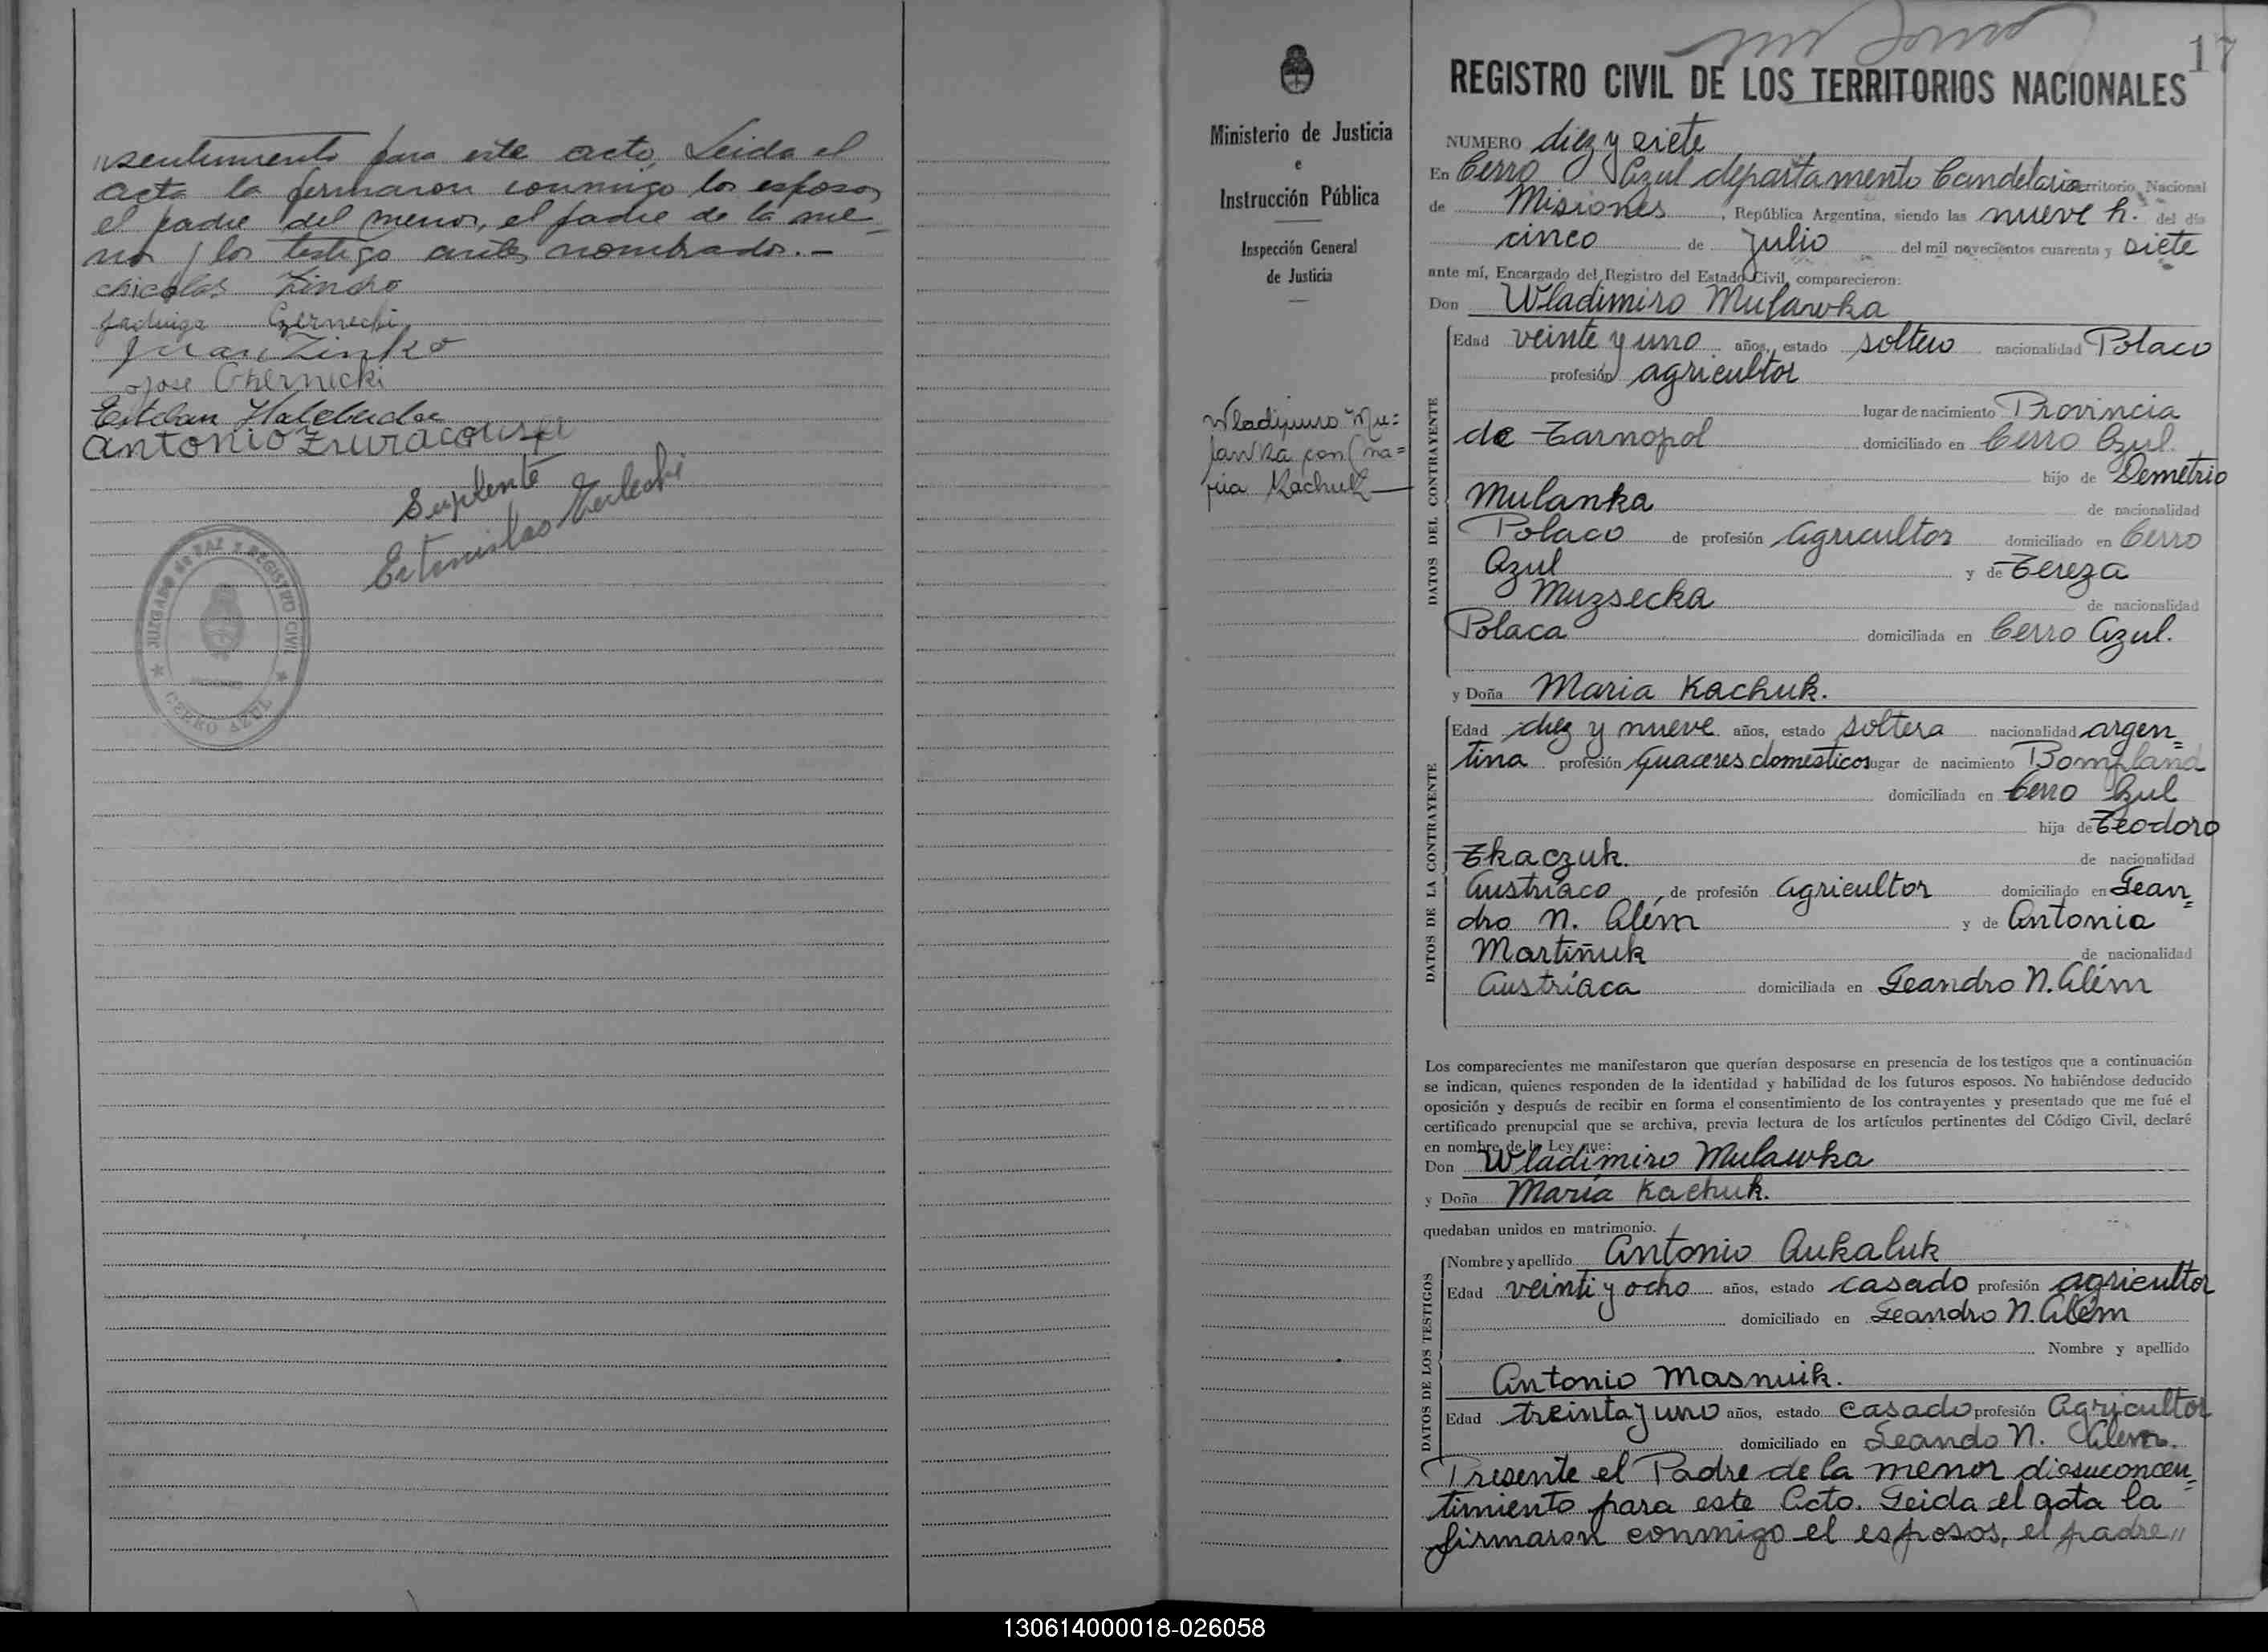 "sentimiento para este acto, Leida el
acta la firmaron conmigo los esposos
el padre del menor, el padre de la me=
nor y los testigo antes nombrado.-
Nicolas Zincko
Jadwiga Czernecki
Juan Zinko
Jose Czernecki
Esteban
Antonio
Suplente
Estanislao
JUZGADO de PAZ Y REGISTRO CIVIL
CERRO AZUL
Ministerio de Justicia
e
Instrucción Pública
Inspección General
de Justicia
Wladimiro Mu=
lawka con Ma=
ria Kachuk
17
REGISTRO CIVIL DE LOS TERRITORIOS NACIONALES
NUMERO diez y siete
En Cerro Azul departamento Candelaria Territorio Nacional
de Misiones, República Argentina, siendo las nueve h. del día
cinco de Julio del mil novecientos cuarenta y siete
ante mí, Encargado del Registro del Estado Civil, comparecieron:
Don Wladimiro Mulawka
DATOS DEL CONTRAYENTE
Edad veinte y uno años, estado soltero nacionalidad Polaco
profesión agricultor
lugar de nacimiento Provincia
de Tarnopol domiciliado en Cerro Azul
hijo de Demetrio
Mulanka de nacionalidad
Polaco de profesión Agricultor domiciliado en Cerro
Azul y de Tereza
Muzsecka de nacionalidad
Polaca domiciliada en Cerro Azul.
y Doña Maria Kachuk.
DATOS DE LA CONTRAYENTE
Edad diez y nueve años, estado soltera nacionalidad argen=
tina profesión Quaceres domesticos lugar de nacimiento Bompland
domiciliada en Cerro Azul
hija de Teodoro
Tkaczuk. de nacionalidad
Austríaco de profesión Agricultor domiciliado en Lean=
dro N. Além y de Antonia
Martiñuk de nacionalidad
Austríaca domiciliada en Leandro N. Além
Los comparecientes me manifestaron que querían desposarse en presencia de los testigos que a continuación
se indican, quienes responden de la identidad y habilidad de los futuros esposos. No habiéndose deducido
oposición y después de recibir en forma el consentimiento de los contrayentes y presentado que me fué el
certificado prenupcial que se archiva, previa lectura de los artículos pertinentes del Código Civil, declaré
en nombre de la Ley que:
Don Wladimiro Mulawka
y Doña María Kachuk.
quedaban unidos en matrimonio.
DATOS DE LOS TESTIGOS
Nombre y apellido Antonio Aukaluk
Edad veinti y ocho años, estado casado profesión agricultor
domiciliado en Leandro N. Além
Nombre y apellido
Antonio Masnuik.
Edad treinta y uno años, estado casado profesión Agricultor
domiciliado en Leando N. Alem.
Presente el Padre de la menor dio su concen=
timiento para este Acto. Leida el acta la
firmaron conmigo el esposos, el padre"
130614000018-026058